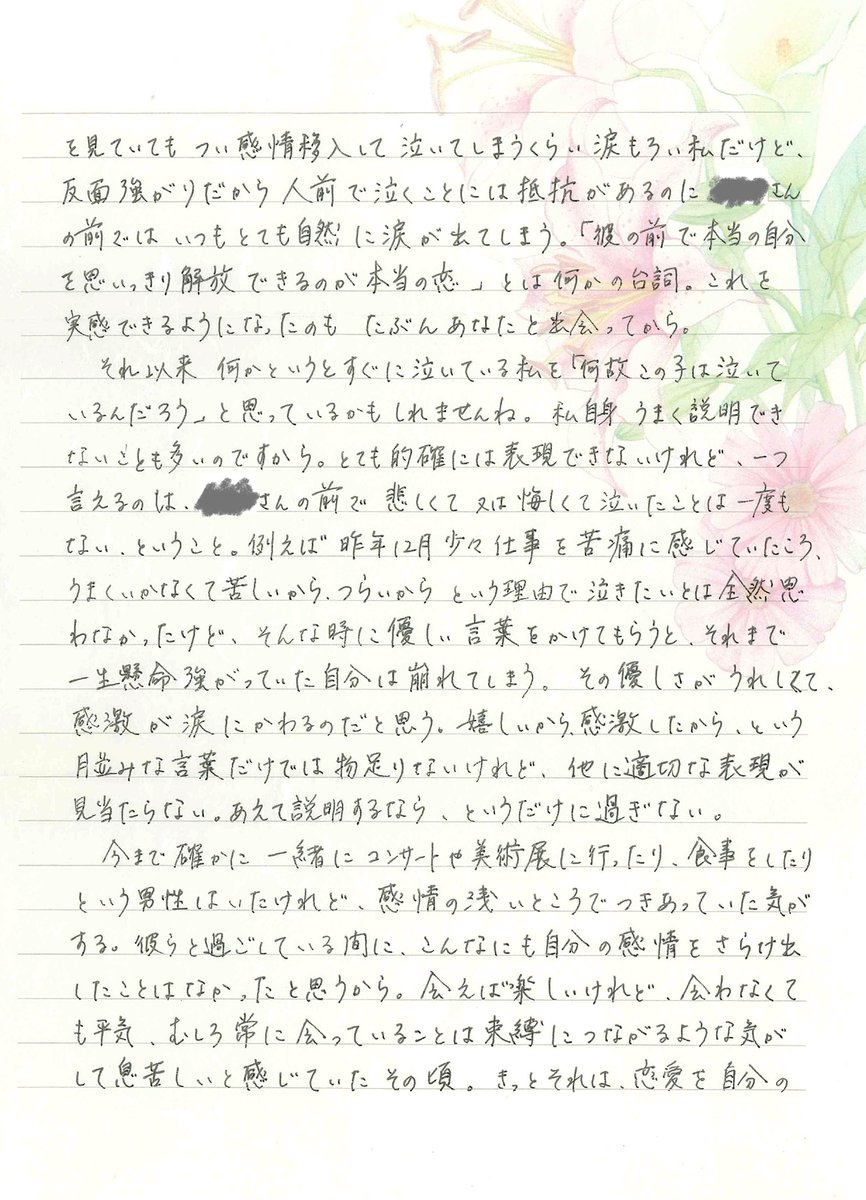 を見ていても つい感情移入して 泣いてしまうくらい 涙もろい私だけど、
反面強がりだから 人前で泣くことには抵抗があるのに さん
の前では いつもとても自然に涙が出てしまう。「彼の前で本当の自分
を思いっきり解放できるのが本当の恋」とは何かの台詞。これを
実感できるようになったのも たぶんあなたと出会ってから。
それ以来 何かというとすぐに泣いている私を「何故この子は泣いて
いるんだろう」と思っているかもしれませんね。私自身うまく説明でき
ないことも多いのですから。とても的確には表現できないけれど、一つ
言えるのは、さんの前で 悲しくて 又は悔しくて泣いたことは一度も
ない、ということ。例えば 昨年12月少々仕事を苦痛に感じていたころ、
うまくいかなくて苦しいから、つらいから という理由で泣きたいとは全然思
わなかったけど、そんな時に優しい言葉をかけてもらうと、それまで
一生懸命強がっていた自分は崩れてしまう。その優しさがうれしくて、
感激が涙にかわるのだと思う。嬉しいから、感激したから、という
月並みな言葉だけでは物足りないけれど、他に適切な表現が
見当たらない。あえて説明するなら、というだけに過ぎない。
今まで確かに 一緒にコンサートや美術展に行ったり、食事をしたり
という男性はいたけれど、感情の浅いところでつきあっていた気が
する。彼らと過ごしている間に、こんなにも自分の感情をさらけ出
したことはなかったと思うから。会えば楽しいけれど、会わなくて
も平気、むしろ常に会っていることは束縛につながるような気が
して息苦しいと感じていたその頃。きっとそれは、恋愛を自分の